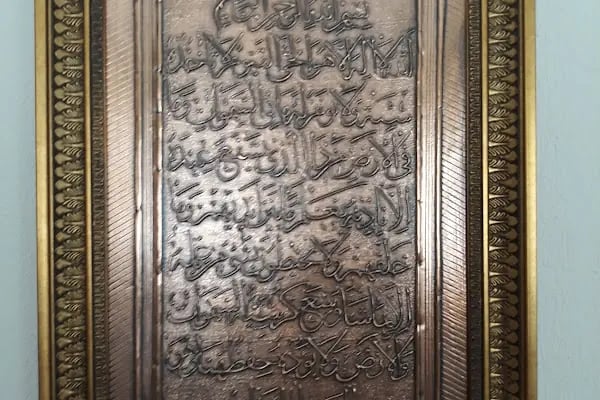 بسم الله الرحمن الرحيم
الله لا اله الا هو الحي القيوم لا تأخذه
سنة ولا نوم له ما في السموات وما
في الارض من ذا الذي يشفع عنده
الا باذنه يعلم ما بين ايديهم وما
خلفهم ولا يحيطون بشيء من علمه
الا بما شاء وسع كرسيه السموات
والارض ولا يؤده حفظهما وهو